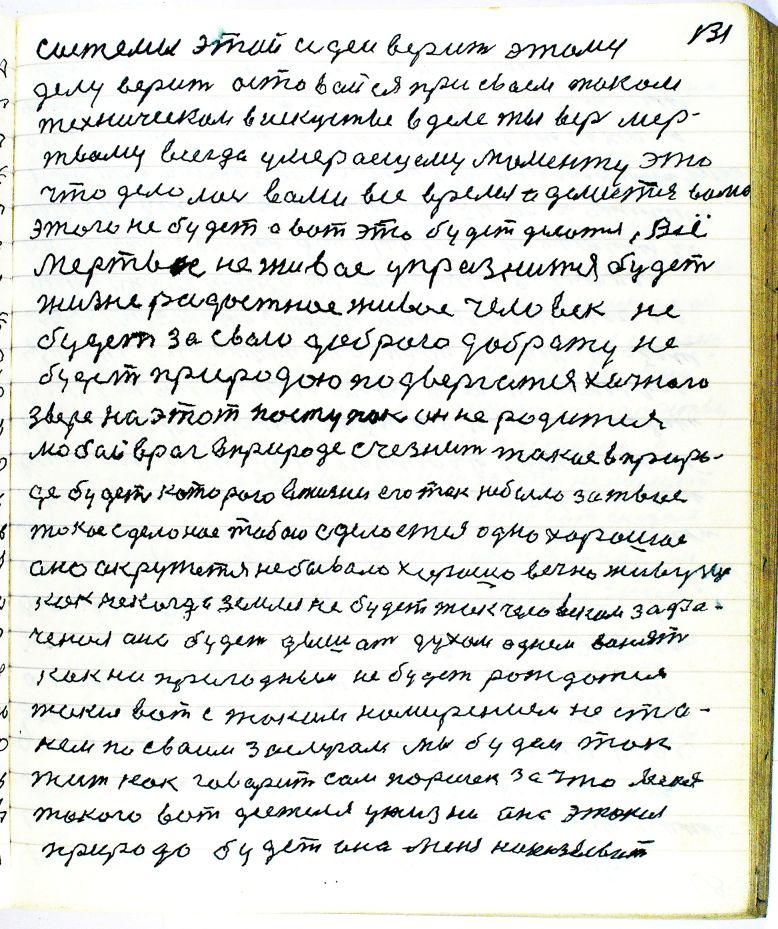 131
системы этой идеи верит этому
делу верит оставайся при своем таком
техническом вискустве в деле ты вер мер-
твому всегда умераещему моменту это
что делолос вами все время
этого не будет а вот это будет делатся, Всё
мертвое не живое упразнится будет
жизне радостное живое человек не
будет за свого доброго добрату не
будет природою подвергатся хачного
звере на этот поступок он не родится
любой враг в природе счезнит такое в приро-
де будет которого в жизни его так небыло за твое
токое сделоное тобою сделоется одно хорошое
ано окружется небывало хорошо вечно
как некогда земля не будет так человеком захва-
ченоя ана будет дышат духом однем
как ни пригодным не будет рождатся
такия вот с таким намирением не ста-
нем по своим заслугам мы будем так
жит как говорит сам поршек за что
такого вот деетеля ужизни ана этокоя
природо будет ана меня наказыват